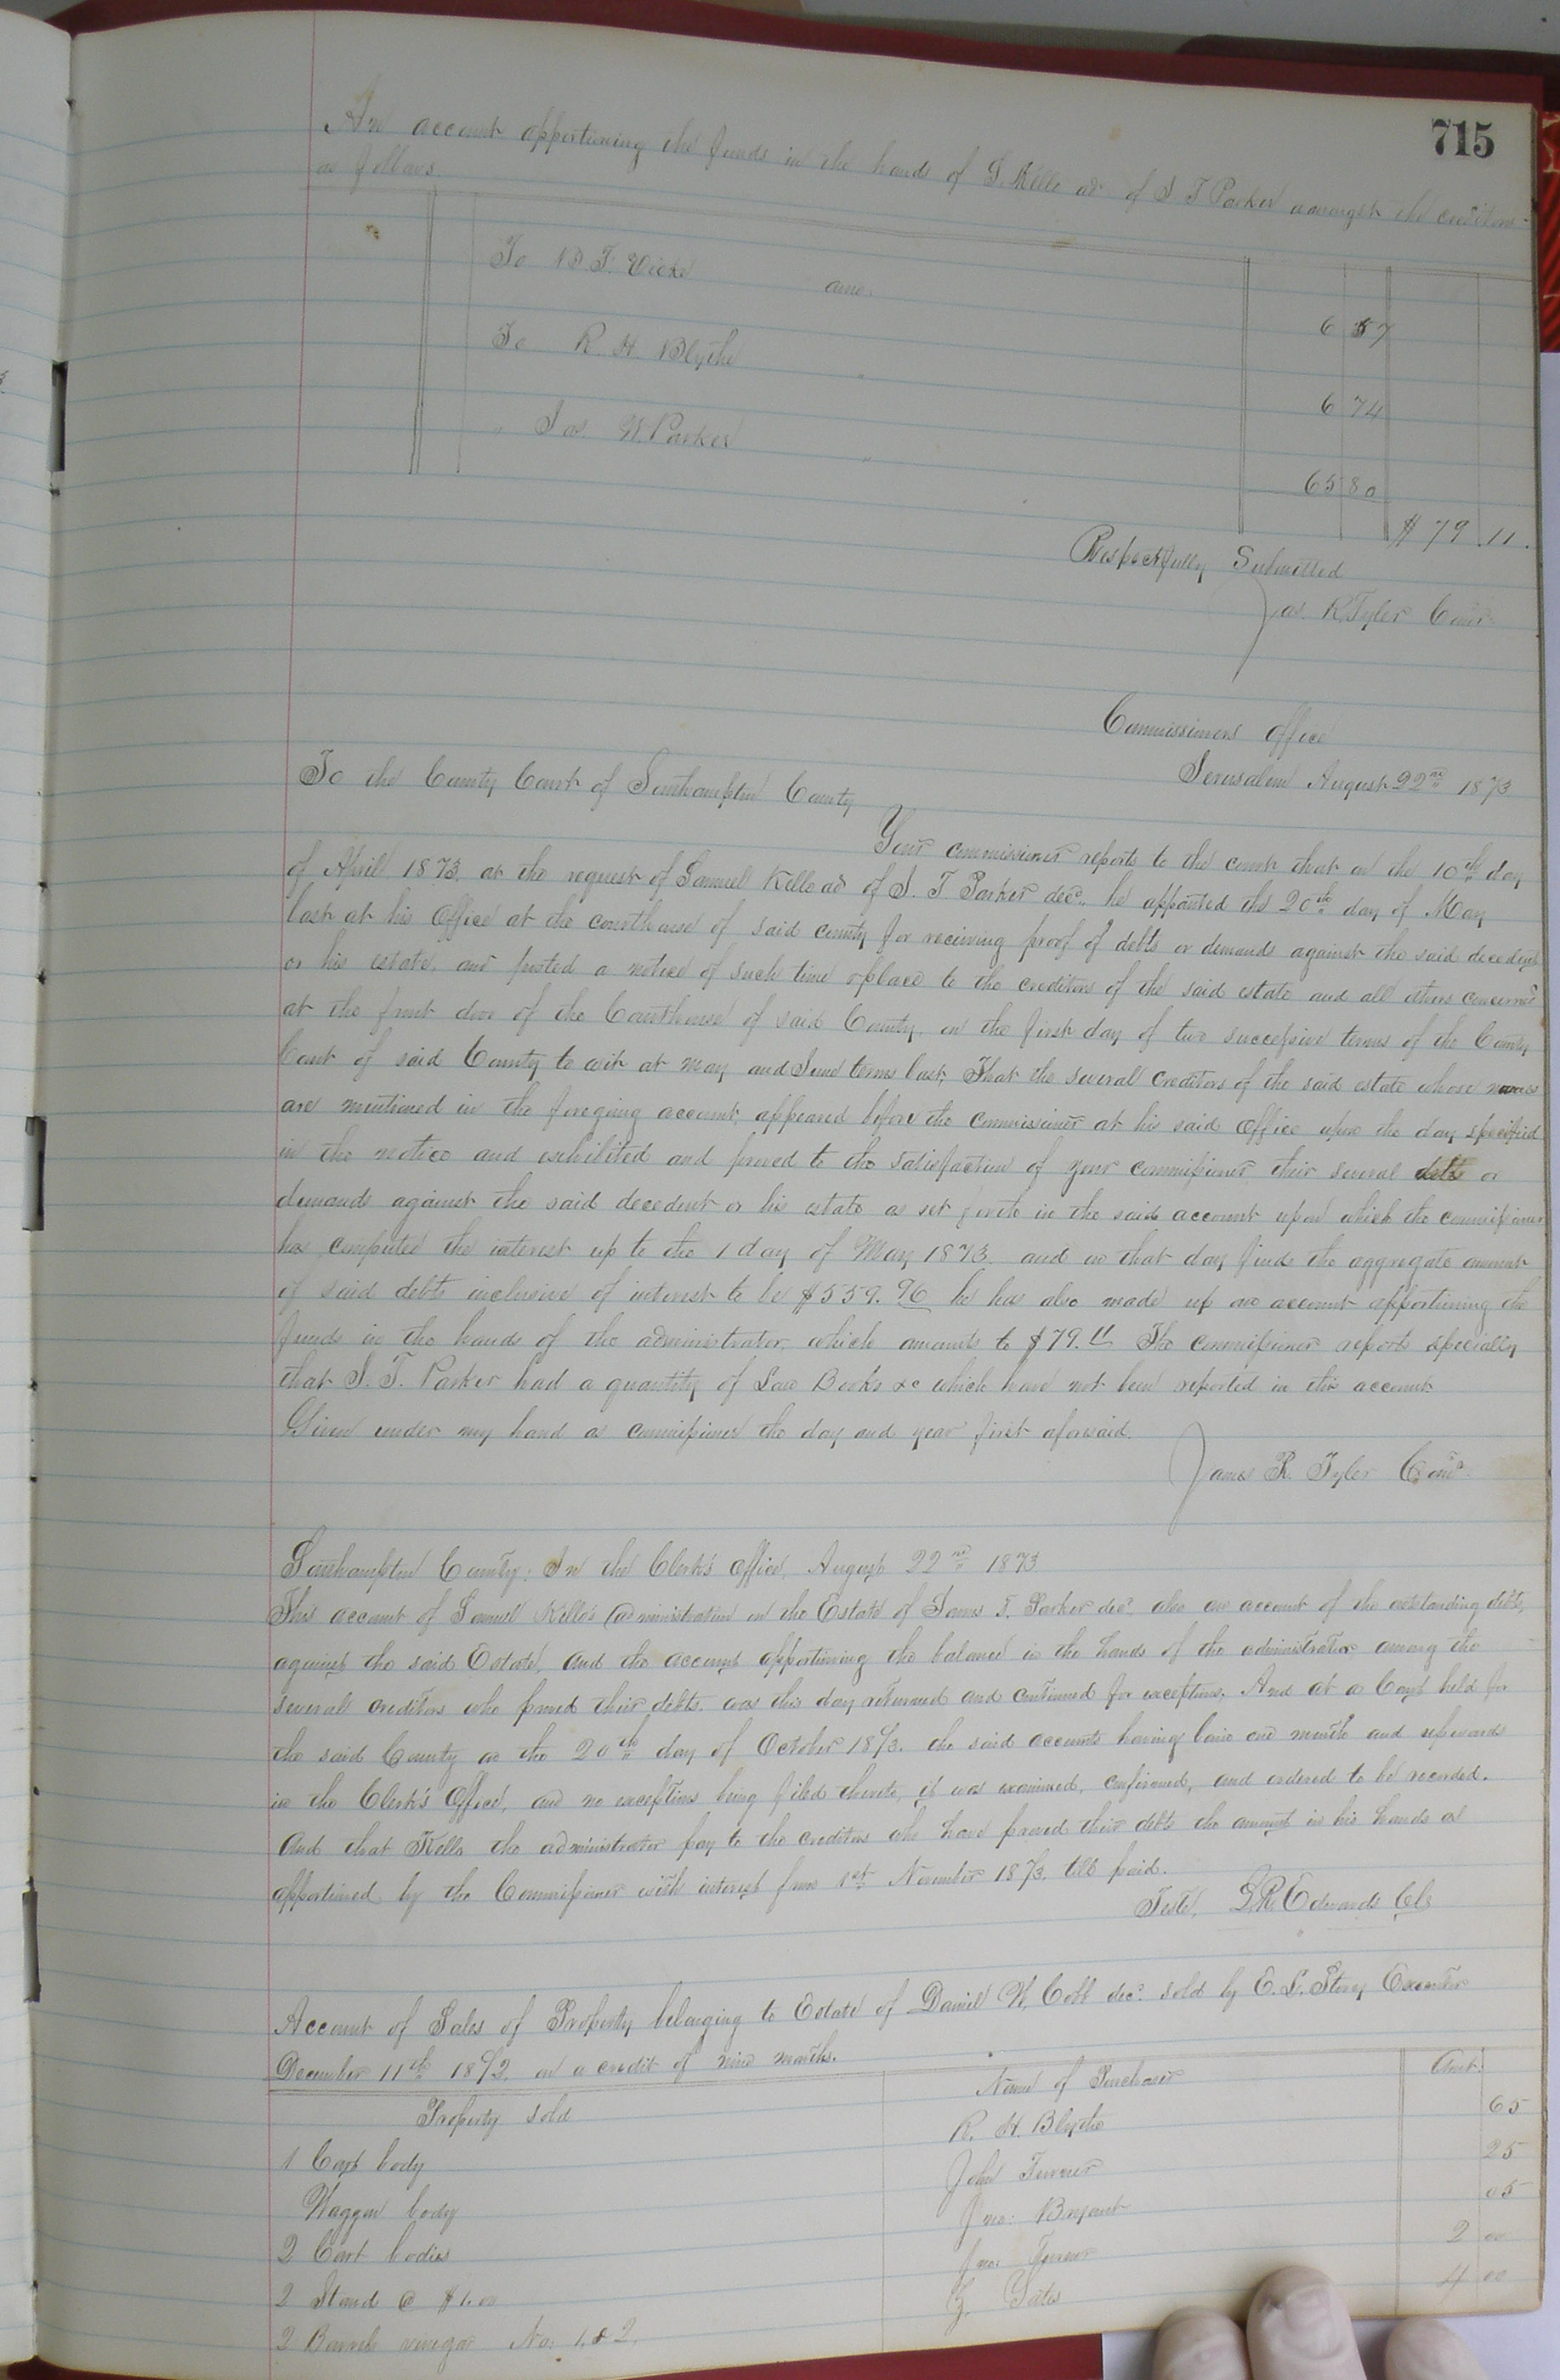 715
An account apportioning the funds in the hands of S. Kello ad^r of J. T Parker amongst the creditors
as follows.
To B. F. Vicks amo. 6 57
To R. H. Blythe " 6 74
" Jas. W. Parker " 65 80
$ 79.11.
Respectfully Submitted
Jas. R. Tyler Com^r.
Commissioners office
Jerusalem August 22^nd 1873.
To the County Court of Southampton County
Your commissioner reports to the court that on the 10^th day
of April 1873. at the request of Samuel Kello ad^r of J. T Parker dec^d. he appointed the 20^th day of May
last at his Office at the courthouse of said county for receiving proof of debts or demands against the said decedent
or his estate. and posted a notice of such time & place to the creditors of the said estate and all others concerned
at the front door of the Courthouse of said County. on the first day of two successive terms of the County
Court of said County to wit at May and June terms last, That the several creditors of the said estate whose names
are mentioned in the foregoing account, appeared before the commissioner at his said Office upon the day specified
in the notice and exhibited and proved to the satisfaction of your commissioner their several debts or
demands against the said decedent or his estate as set forth in the said account upon which the commissioner
has computed the interest up to the 1 day of May 1873. and on that day finds the aggregate amount
of said debts inclusive of interest to be $559.96 he has also made up an account apportioning the
funds in the hands of the administrator, which amounts to $79.11 The commissioner reports specially
that J. T. Parker had a quantity of Law Books &c which have not been reported in this account.
Given under my hand as commissioner the day and year first aforesaid.
James R. Tyler Com^r.
Southampton County: In the Clerk's Office, August 22^nd 1873
This account of Samuel Kello's administration on the Estate of James T. Parker dec^d. also an account of the outstanding debts,
against the said Estate, and the account apportioning the balance in the hands of the administrator among the
several creditors who proved their debts. was this day returned and continued for exceptions, And at a Court held for
the said County on the 20^th day of October 1873. the said accounts having lain one month and upwards
in the Clerk's Office, and no exceptions being filed thereto, it was examined, confirmed, and ordered to be recorded.
And that Kello the administrator pay to the creditors who have proved their debts the amount in his hands as
apportioned by the Commissioner with interest from 1^st November 1873. till paid.
Teste, L. R. Edwards Clk
Account of Sales of Property belonging to Estate of Daniel W. Cobb dec^d. sold by E. S. Story Executor
December 11^th 1872. on a credit of nine months.
Property sold Name of Purchaser Amt.
1 Cart body R. H. Blythe 65
Waggon body John Turner 25
2 Cart bodies Jno: Bryant 05
2 Stand @ $1.00 Jno: Turner 2 00
2 Barrels vinegar No: 1 & 2, Z. Gates 4 00